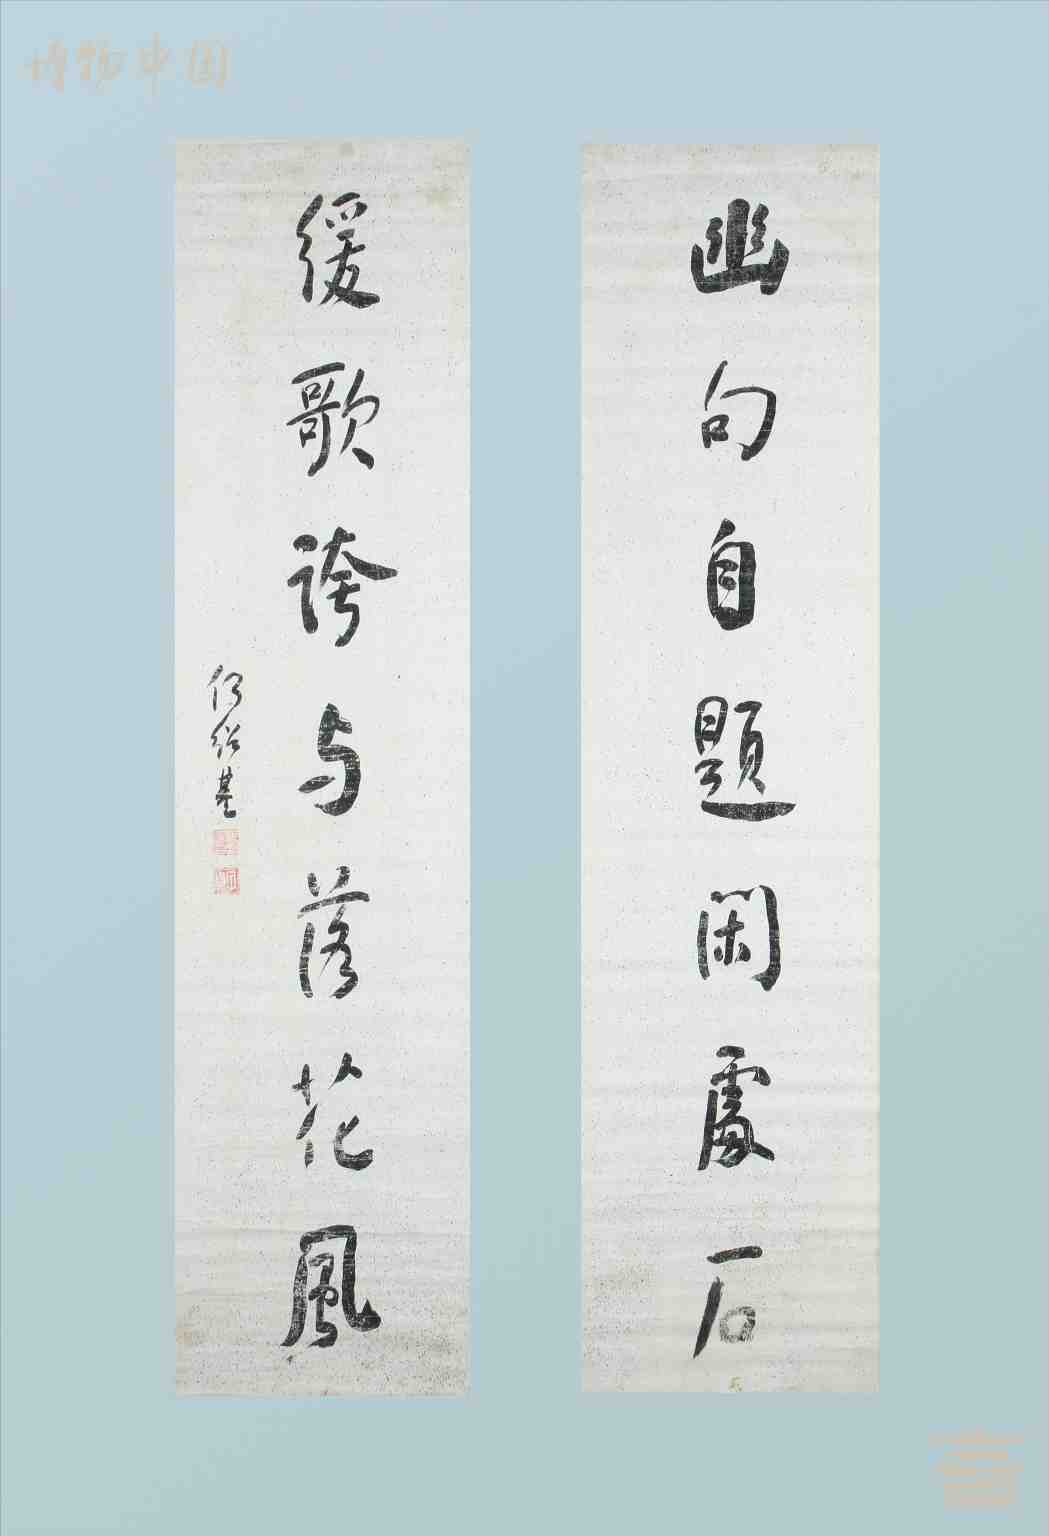 博物中国
幽句自題閑處石
緩歌誇与落花風
何紹基